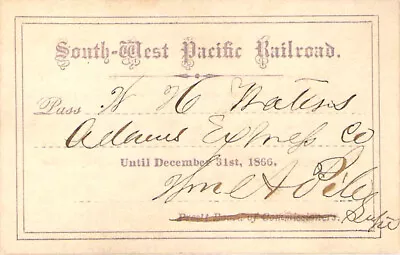 South-West Pacific Railroad.
Pass W H Waters
Adams Express Co
Until December 31st, 1866,
Wm A Pile
Pres't Board of Commissioners. Supt